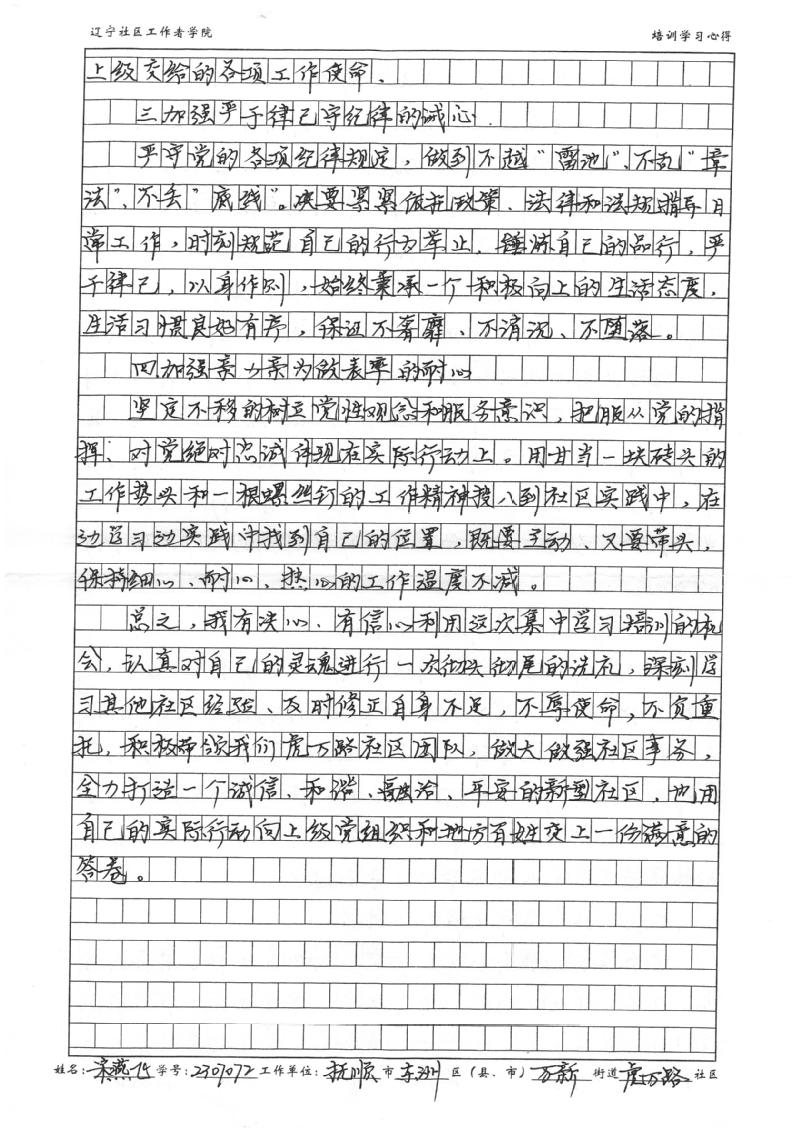 辽宁社区工作者学院 培训学习心得
上级交给的各项工作使命、
三加强严于律己守纪律的诚心、
严守党的各项纪律规定，做到不越“雷池”、不乱“章
法”、不丢“底线”。决要紧紧依托政策、法律和法规指导日
常工作，时刻规范自己的行为举止、锤炼自己的品行，严
于律己，以身作则，始终秉承一个积极向上的生活态度，
生活习惯良好有序，保证不奢靡、不消沉、不堕落。
四加强亲力亲为做表率的耐心
坚定不移的树立党性观念和服务意识，把服从党的指
挥；对党绝对忠诚体现在实际行动上。用甘当一块砖头的
工作势头和一根螺丝钉的工作精神投入到社区实践中，在
边学习边实践中找到自己的位置，既要主动、又要带头，
保持细心、耐心、热心的工作温度不减。
总之，我有决心、有信心利用这次集中学习培训的机
会，认真对自己的灵魂进行一次彻头彻尾的洗礼，深刻学
习其他社区经验、及时修正自身不足，不辱使命，不负重
托，积极带领我们虎万路社区团队，做大做强社区事务，
全力打造一个诚信、和谐、融洽、平安的新型社区，也用
自己的实际行动向上级党组织和地方百姓交上一份满意的
答卷。
姓名：宋燕 学号：2307072 工作单位：抚顺 市 东洲 区（县、市） 万新 街道 虎万路 社区